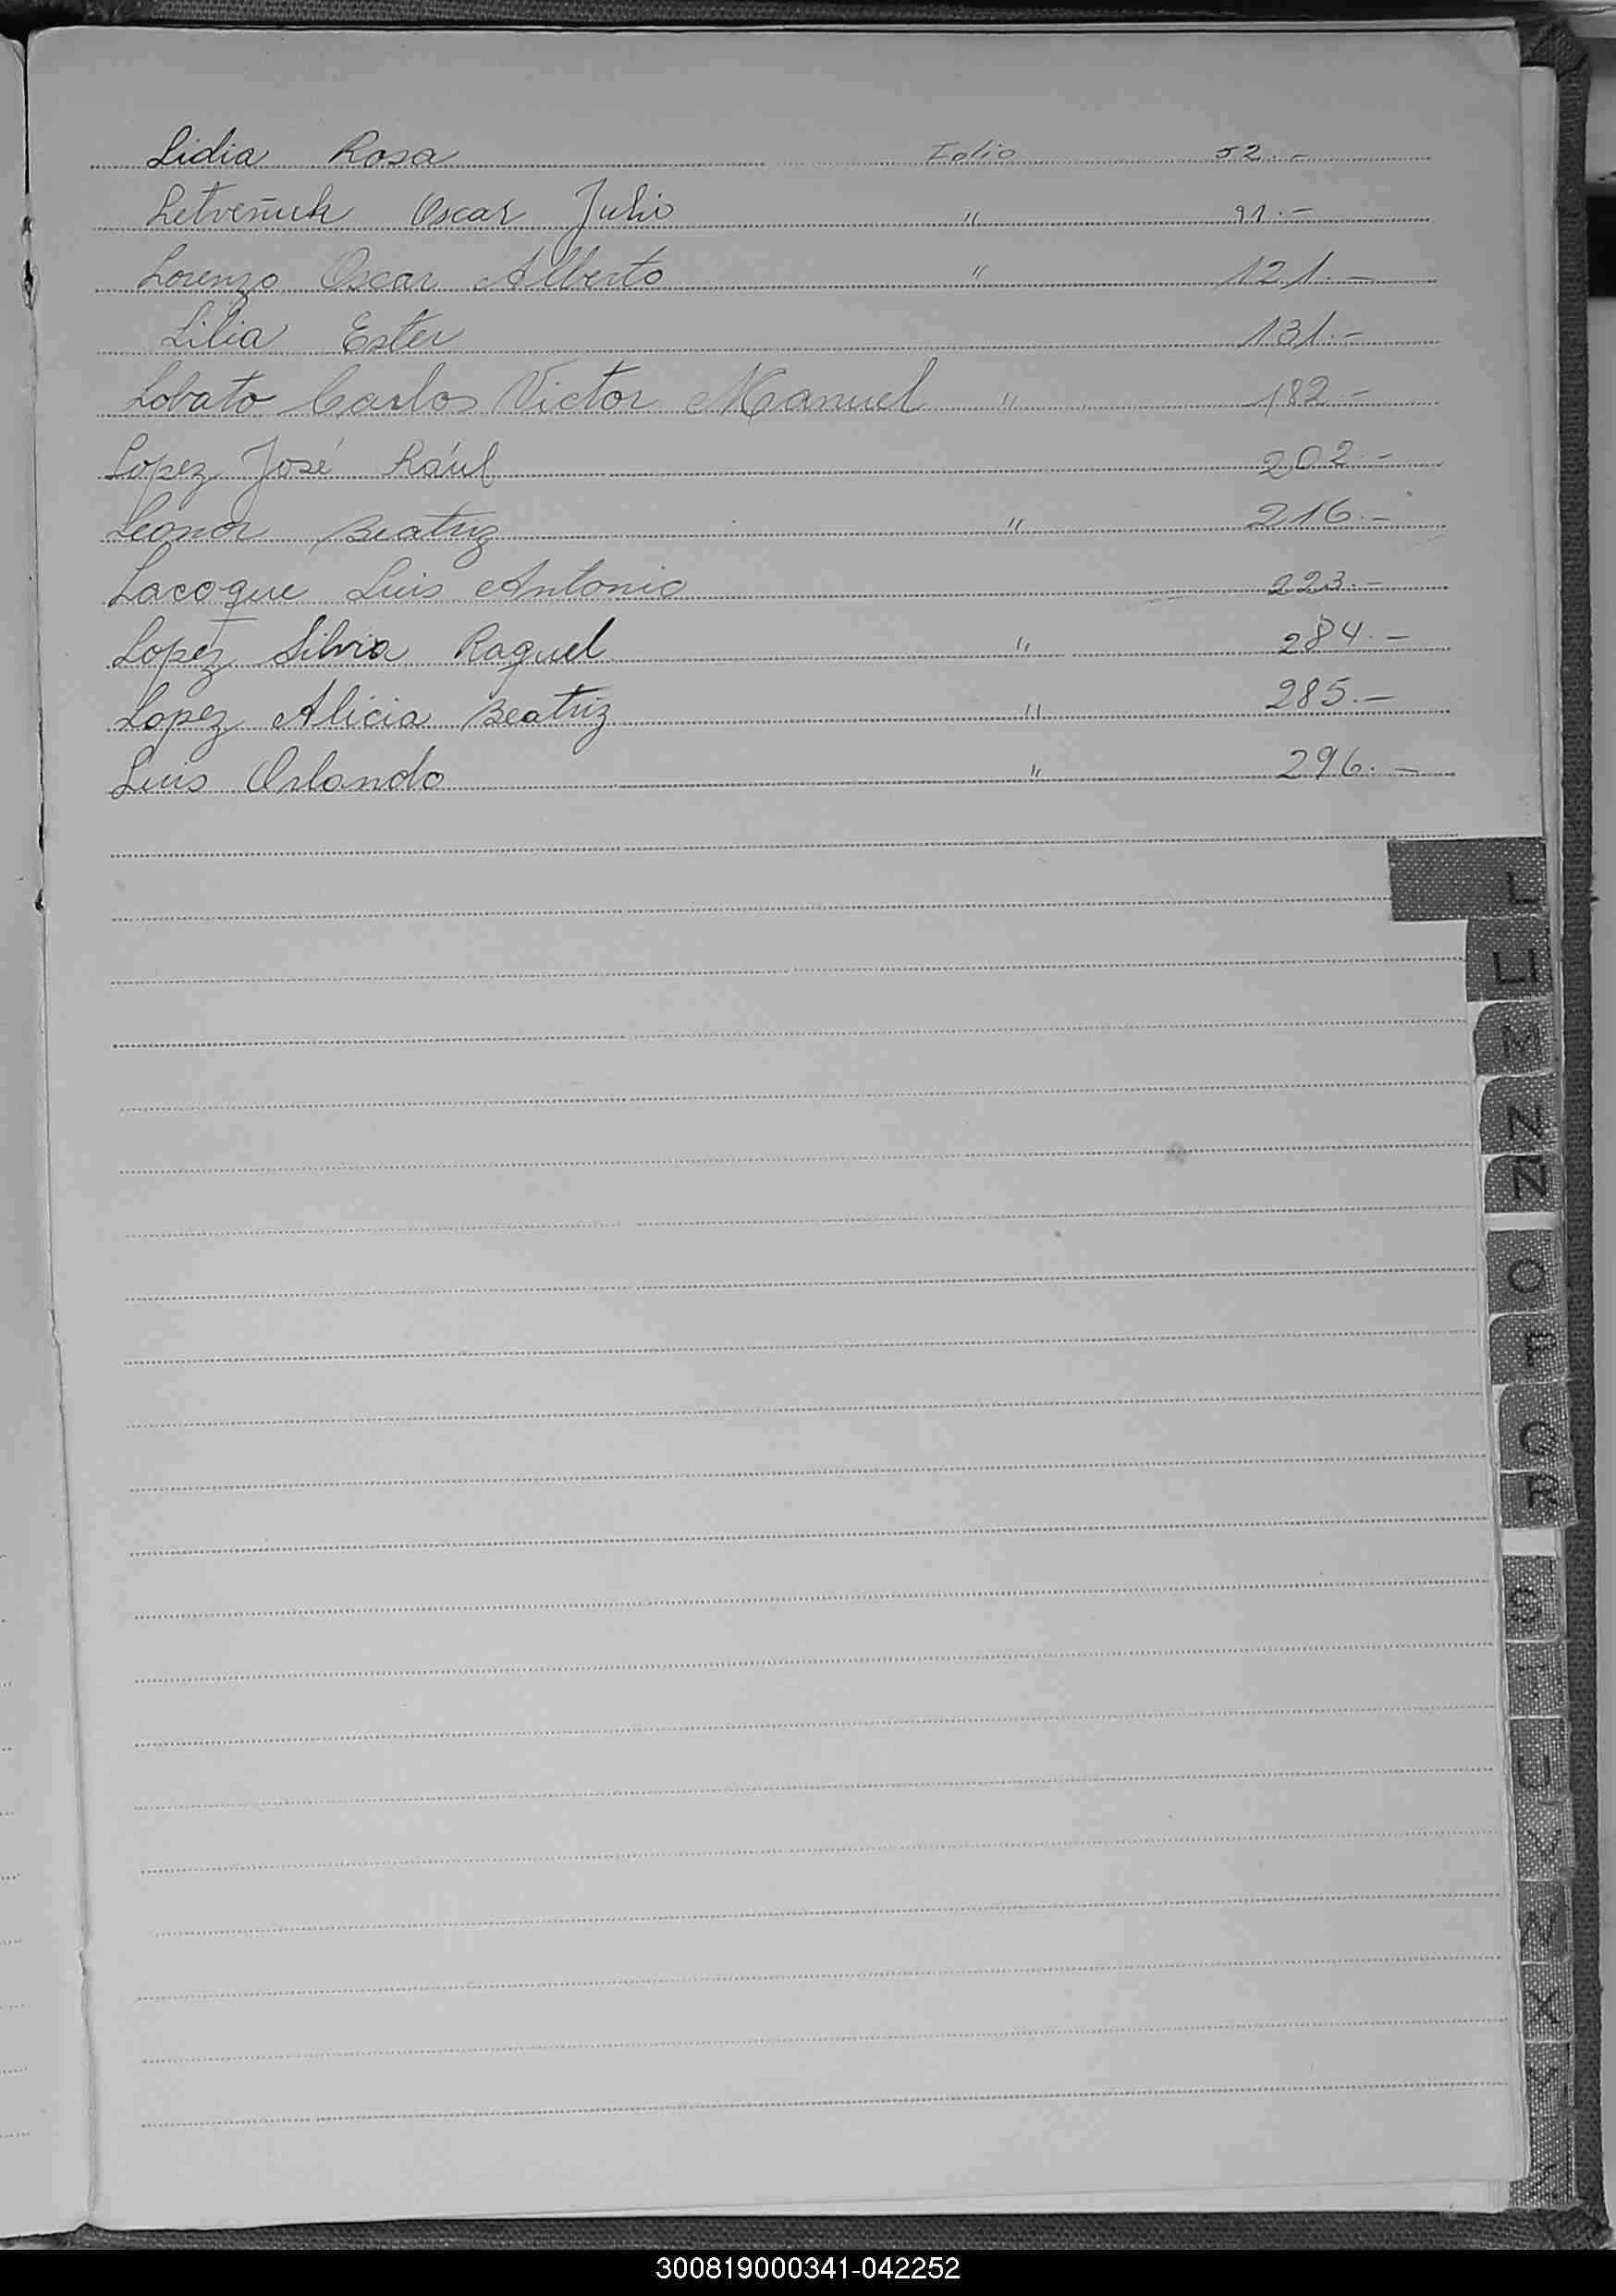 Lidia Rosa Folio 52.-
Letveñuk Oscar Julio " 91.-
Lorenzo Oscar Alberto " 121.-
Lilia Ester 131.-
Lobato Carlos Victor Manuel " 182.-
Lopez José Raúl 202.-
Leonor Beatriz " 216.-
Lacoque Luis Antonio 223.-
Lopez Silvia Raquel " 284.-
Lopez Alicia Beatriz " 285.-
Luis Orlando " 296.-
L
LL
M
N
Ñ
O
P
Q
R
S
U
V
X
300819000341-042252